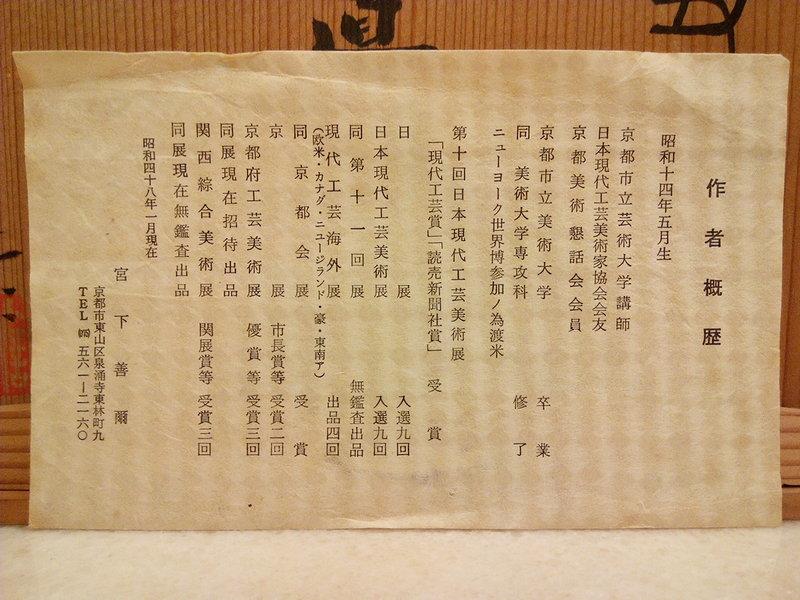 作者概歴
昭和十四年五月生
京都市立芸術大学講師
日本現代工芸美術家協会会友
京都美術懇話会会員
京都市立美術大学 卒業
同 美術大学専攻科 修了
ニューヨーク世界博参加ノ為渡米
第十回日本現代工芸美術展
「現代工芸賞」「読売新聞社賞」 受賞
日展 入選九回
日本現代工芸美術展 入選九回
同第十一回展 無鑑査出品
現代工芸海外展 出品四回
(欧米・カナダ・ニュージランド・豪・東南ア)
同京都会展 受賞
京展 市長賞等 受賞二回
京都府工芸美術展 優賞等 受賞三回
同展現在招待出品
関西綜合美術展 関展賞等 受賞三回
同展現在無鑑査出品
昭和四十八年一月現在
宮下善爾
京都市東山区泉涌寺東林町九
TEL 五六一―二一六〇